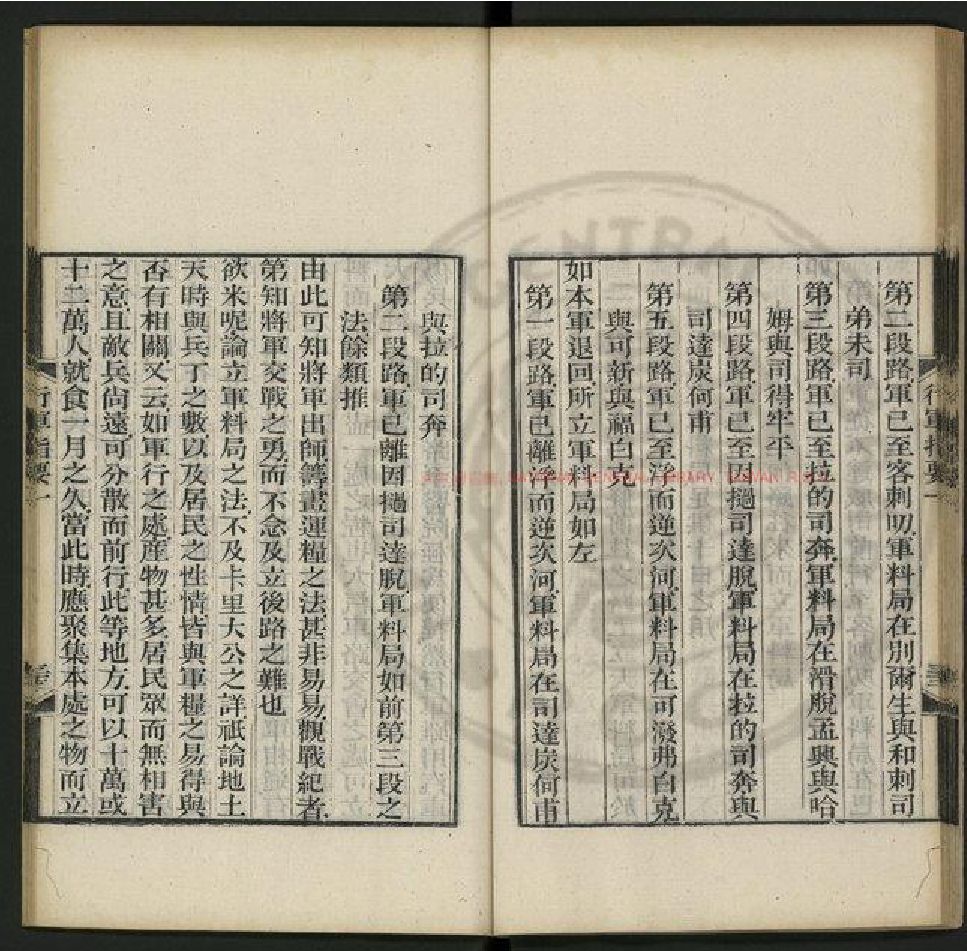 第二段路軍已至客刺叨軍料局在別爾生與和刺司
弟未司
第三段路軍已至拉的司奔軍料局在滑脫孟興與哈
姆與司得牢平
第四段路軍已至因撾司達脫軍料局在拉的司奔與
司達炭何甫
第五段路軍已至浮而逆次河軍料局在可潑弗白克
與可新與福白克
如本軍退回所立軍料局如左
第一段路軍已離浮而逆次河軍料局在司達炭何甫
行軍指要一
與拉的司奔
第二段路軍已離因撾司達脫軍料局如前第三段之
法餘類推
由此可知將軍出師籌畫運糧之法甚非易易觀戰紀者
第知將軍交戰之勇而不念及立後路之難也
欲米呢論立軍料局之法不及卡里大公之詳祇論地土
天時與兵丁之數以及居民之性情皆與軍糧之易得與
否有相關又云如軍行之處產物甚多居民眾而無相害
之意且敵兵尚遠可分散而前行此等地方可以十萬或
十二萬人就食一月之久當此時應聚集本處之物而立
行軍指要一